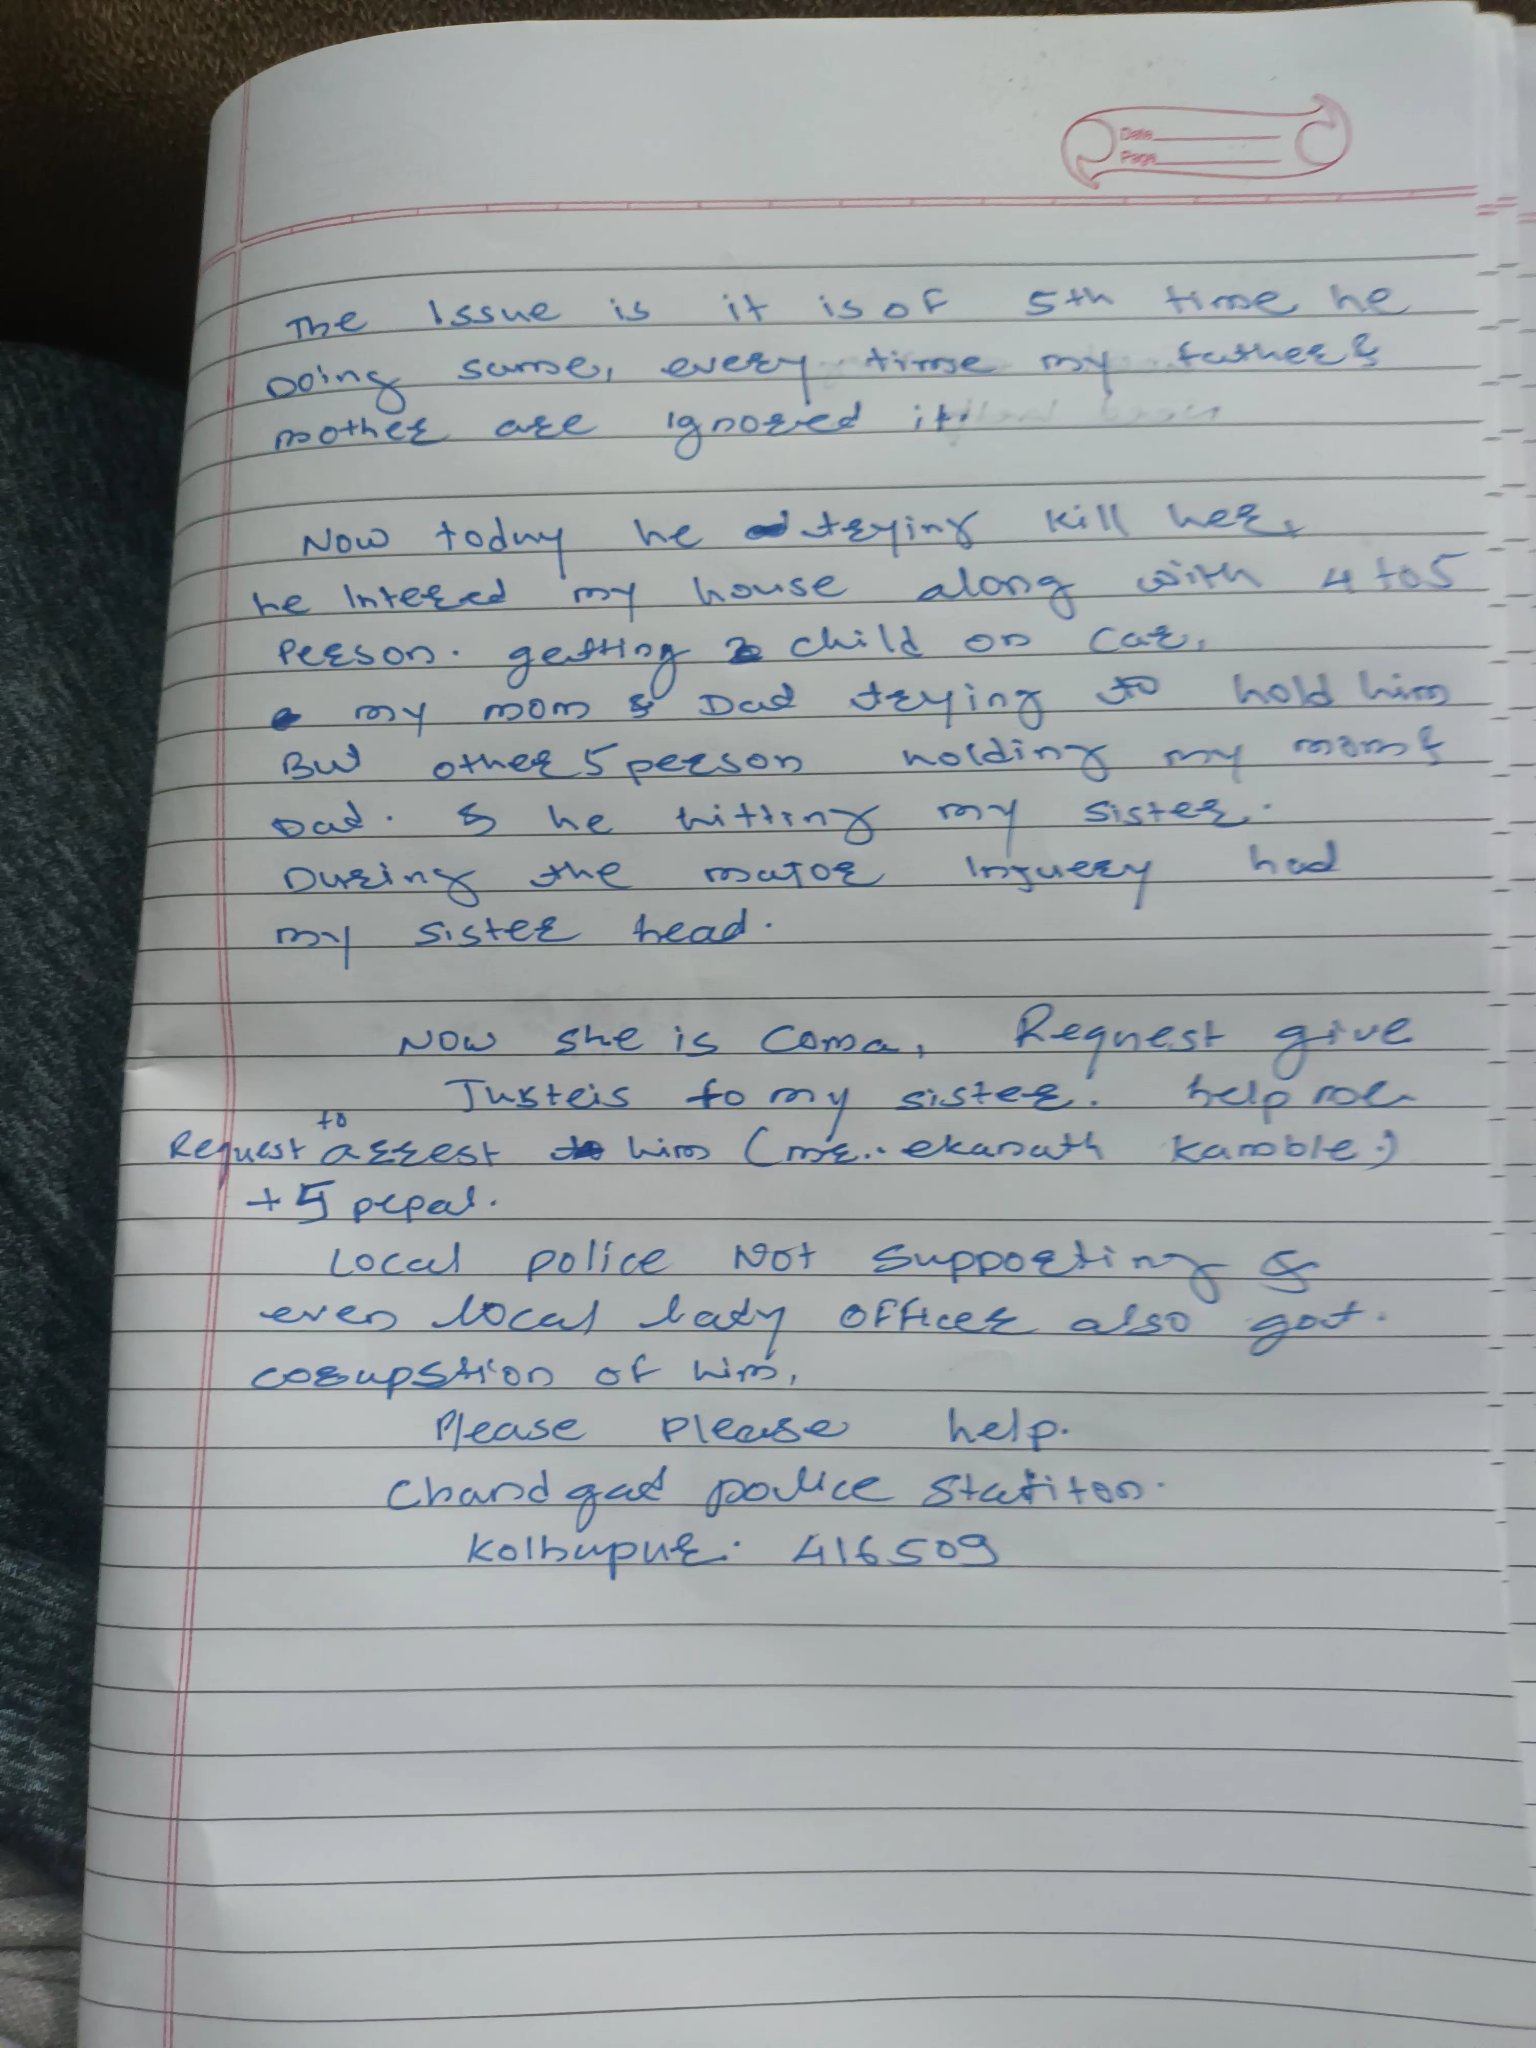 Date
Page
The Issue is it is of 5th time he
Doing same, every time my father &
mother are ignored it.
Now today he trying kill her,
he Intered my house along with 4 to 5
Person. getting child on car.
my mom & Dad trying to hold him
But other 5 person holding my mom &
Dad. & he hitting my sister.
During the major Injuery had
my sister head.
Now she is Coma, Request give
Justeis to my sister. help me
Request to arrest him (mr. ekanath Kamble.)
+ 5 pepal.
Local police Not supporting &
even local lady officer also got.
corupstion of him,
Please Please help.
Chandgad police Statiton.
Kolhapur. 416509